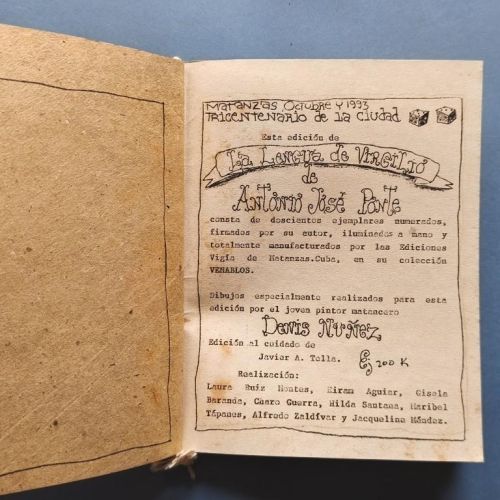 Matanzas, Octubre y 1993
TRICENTENARIO de la Ciudad
Esta edición de
La Lengua de Virgilio
de
Antonio José Ponte
consta de doscientos ejemplares numerados,
firmados por su autor, iluminados a mano y
totalmente manufacturados por las Ediciones
Vigía de Matanzas.Cuba, en su colección
VENABLOS.
Dibujos especialmente realizados para esta
edición por el joven pintor matancero
Denis Nuñez
Edición al cuidado de
Javier A. Tella. Ej 200 K
Realización:
Laura Ruiz Montes, Eiram Aguiar, Gisela
Baranda, Charo Guerra, Hilda Santana, Maribel
Tápanes, Alfredo Zaldívar y Jacqueline Méndez.